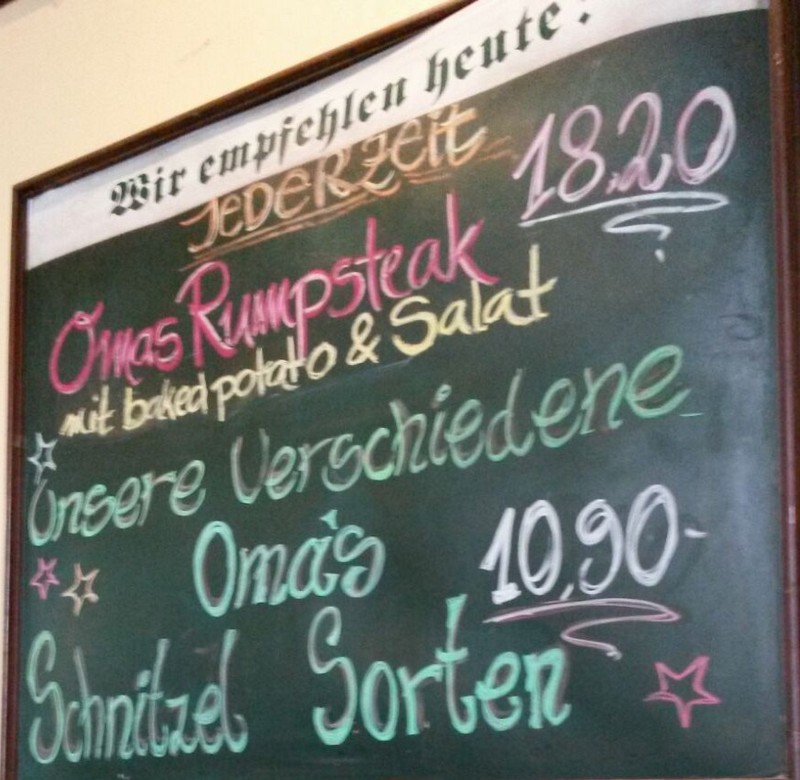 Wir empfehlen heute:
JEDERZEIT
18.20
Omas Rumpsteak
mit baked potato & Salat
Unsere Verschiedene
Oma's
10,90-
Schnitzel Sorten